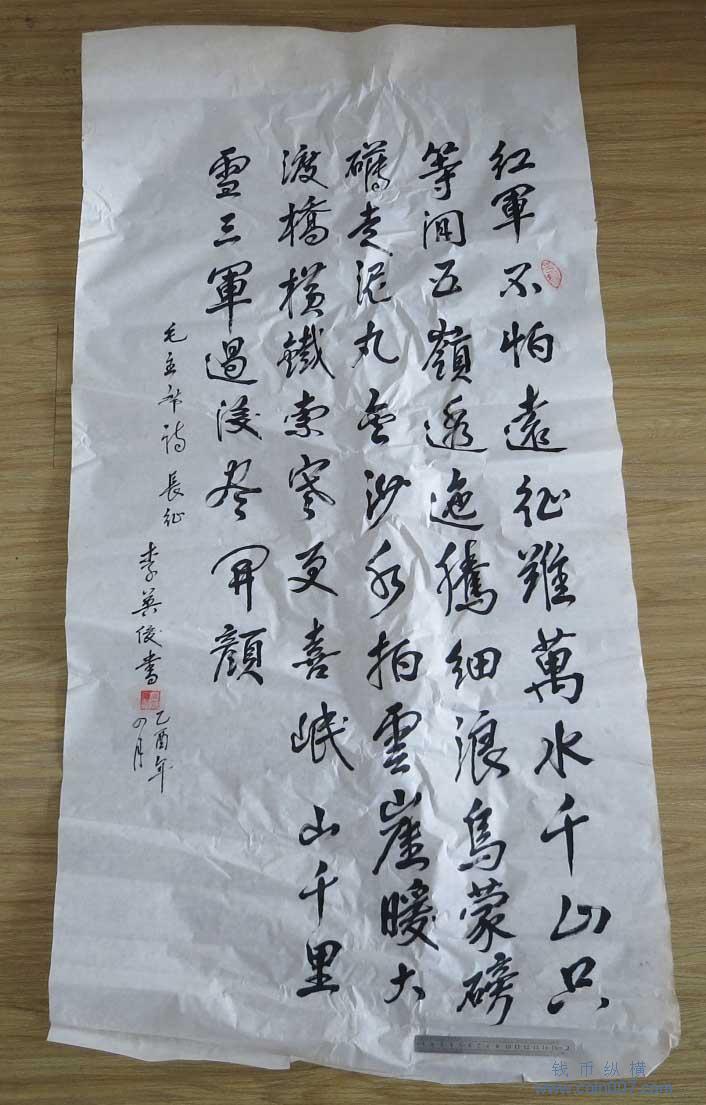 紅軍不怕遠征難萬水千山只
等閑五嶺逶迤騰細浪烏蒙磅
礴走泥丸金沙水拍雲崖暖大
渡橋橫鐵索寒更喜岷山千里
雪三軍過後尽開顏
毛主席詩 長征 李英俊書
乙酉年
四月
钱币纵横
www.coin007.com